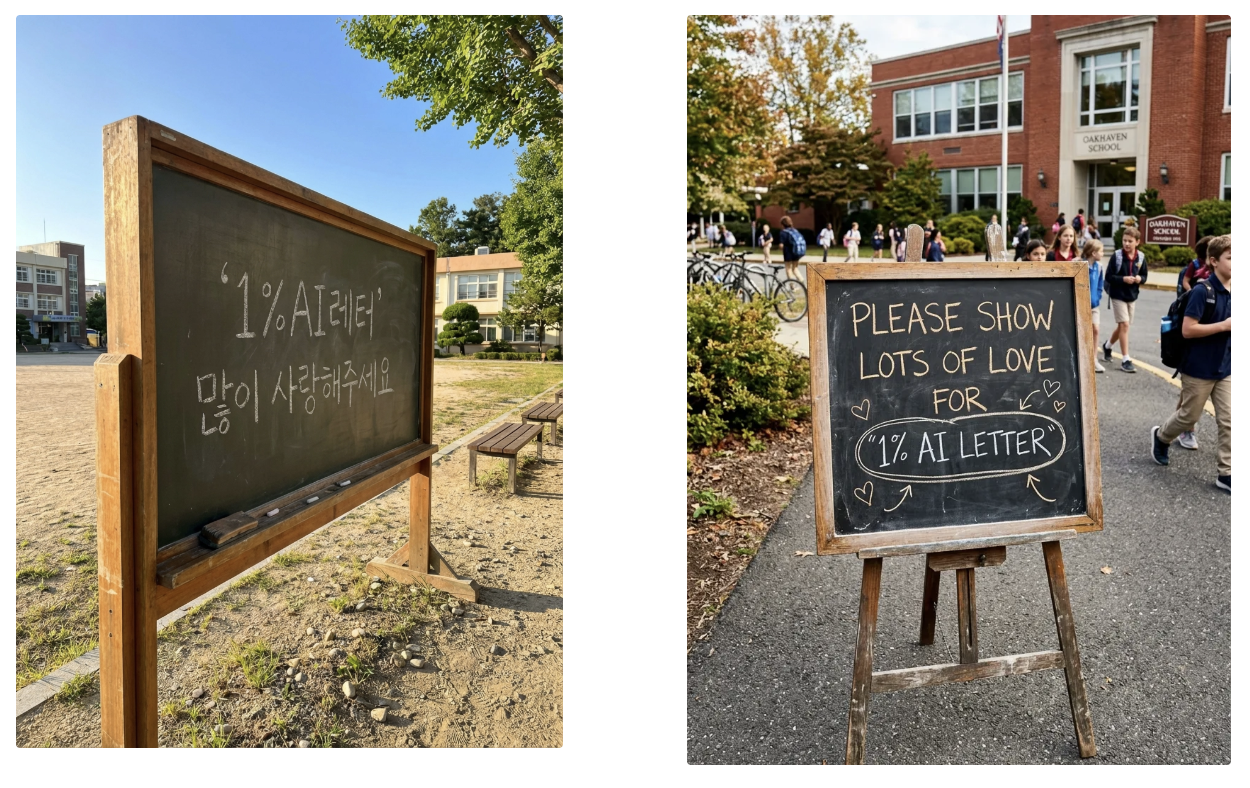 '1%AI레터'
많이 사랑해주세요
OAKHAVEN
SCHOOL
OAKHAVEN
SCHOOL
PLEASE SHOW
LOTS OF LOVE
FOR
"1% AI LETTER"